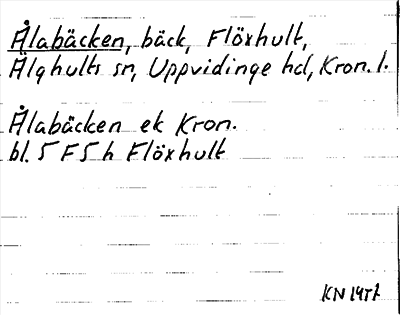 Ålabäcken, bäck, Flöxhult,
Älghults sn, Uppvidinge hd, Kron. l.
Ålabäcken ek Kron.
bl. 5 F 5 h Flöxhult
KN